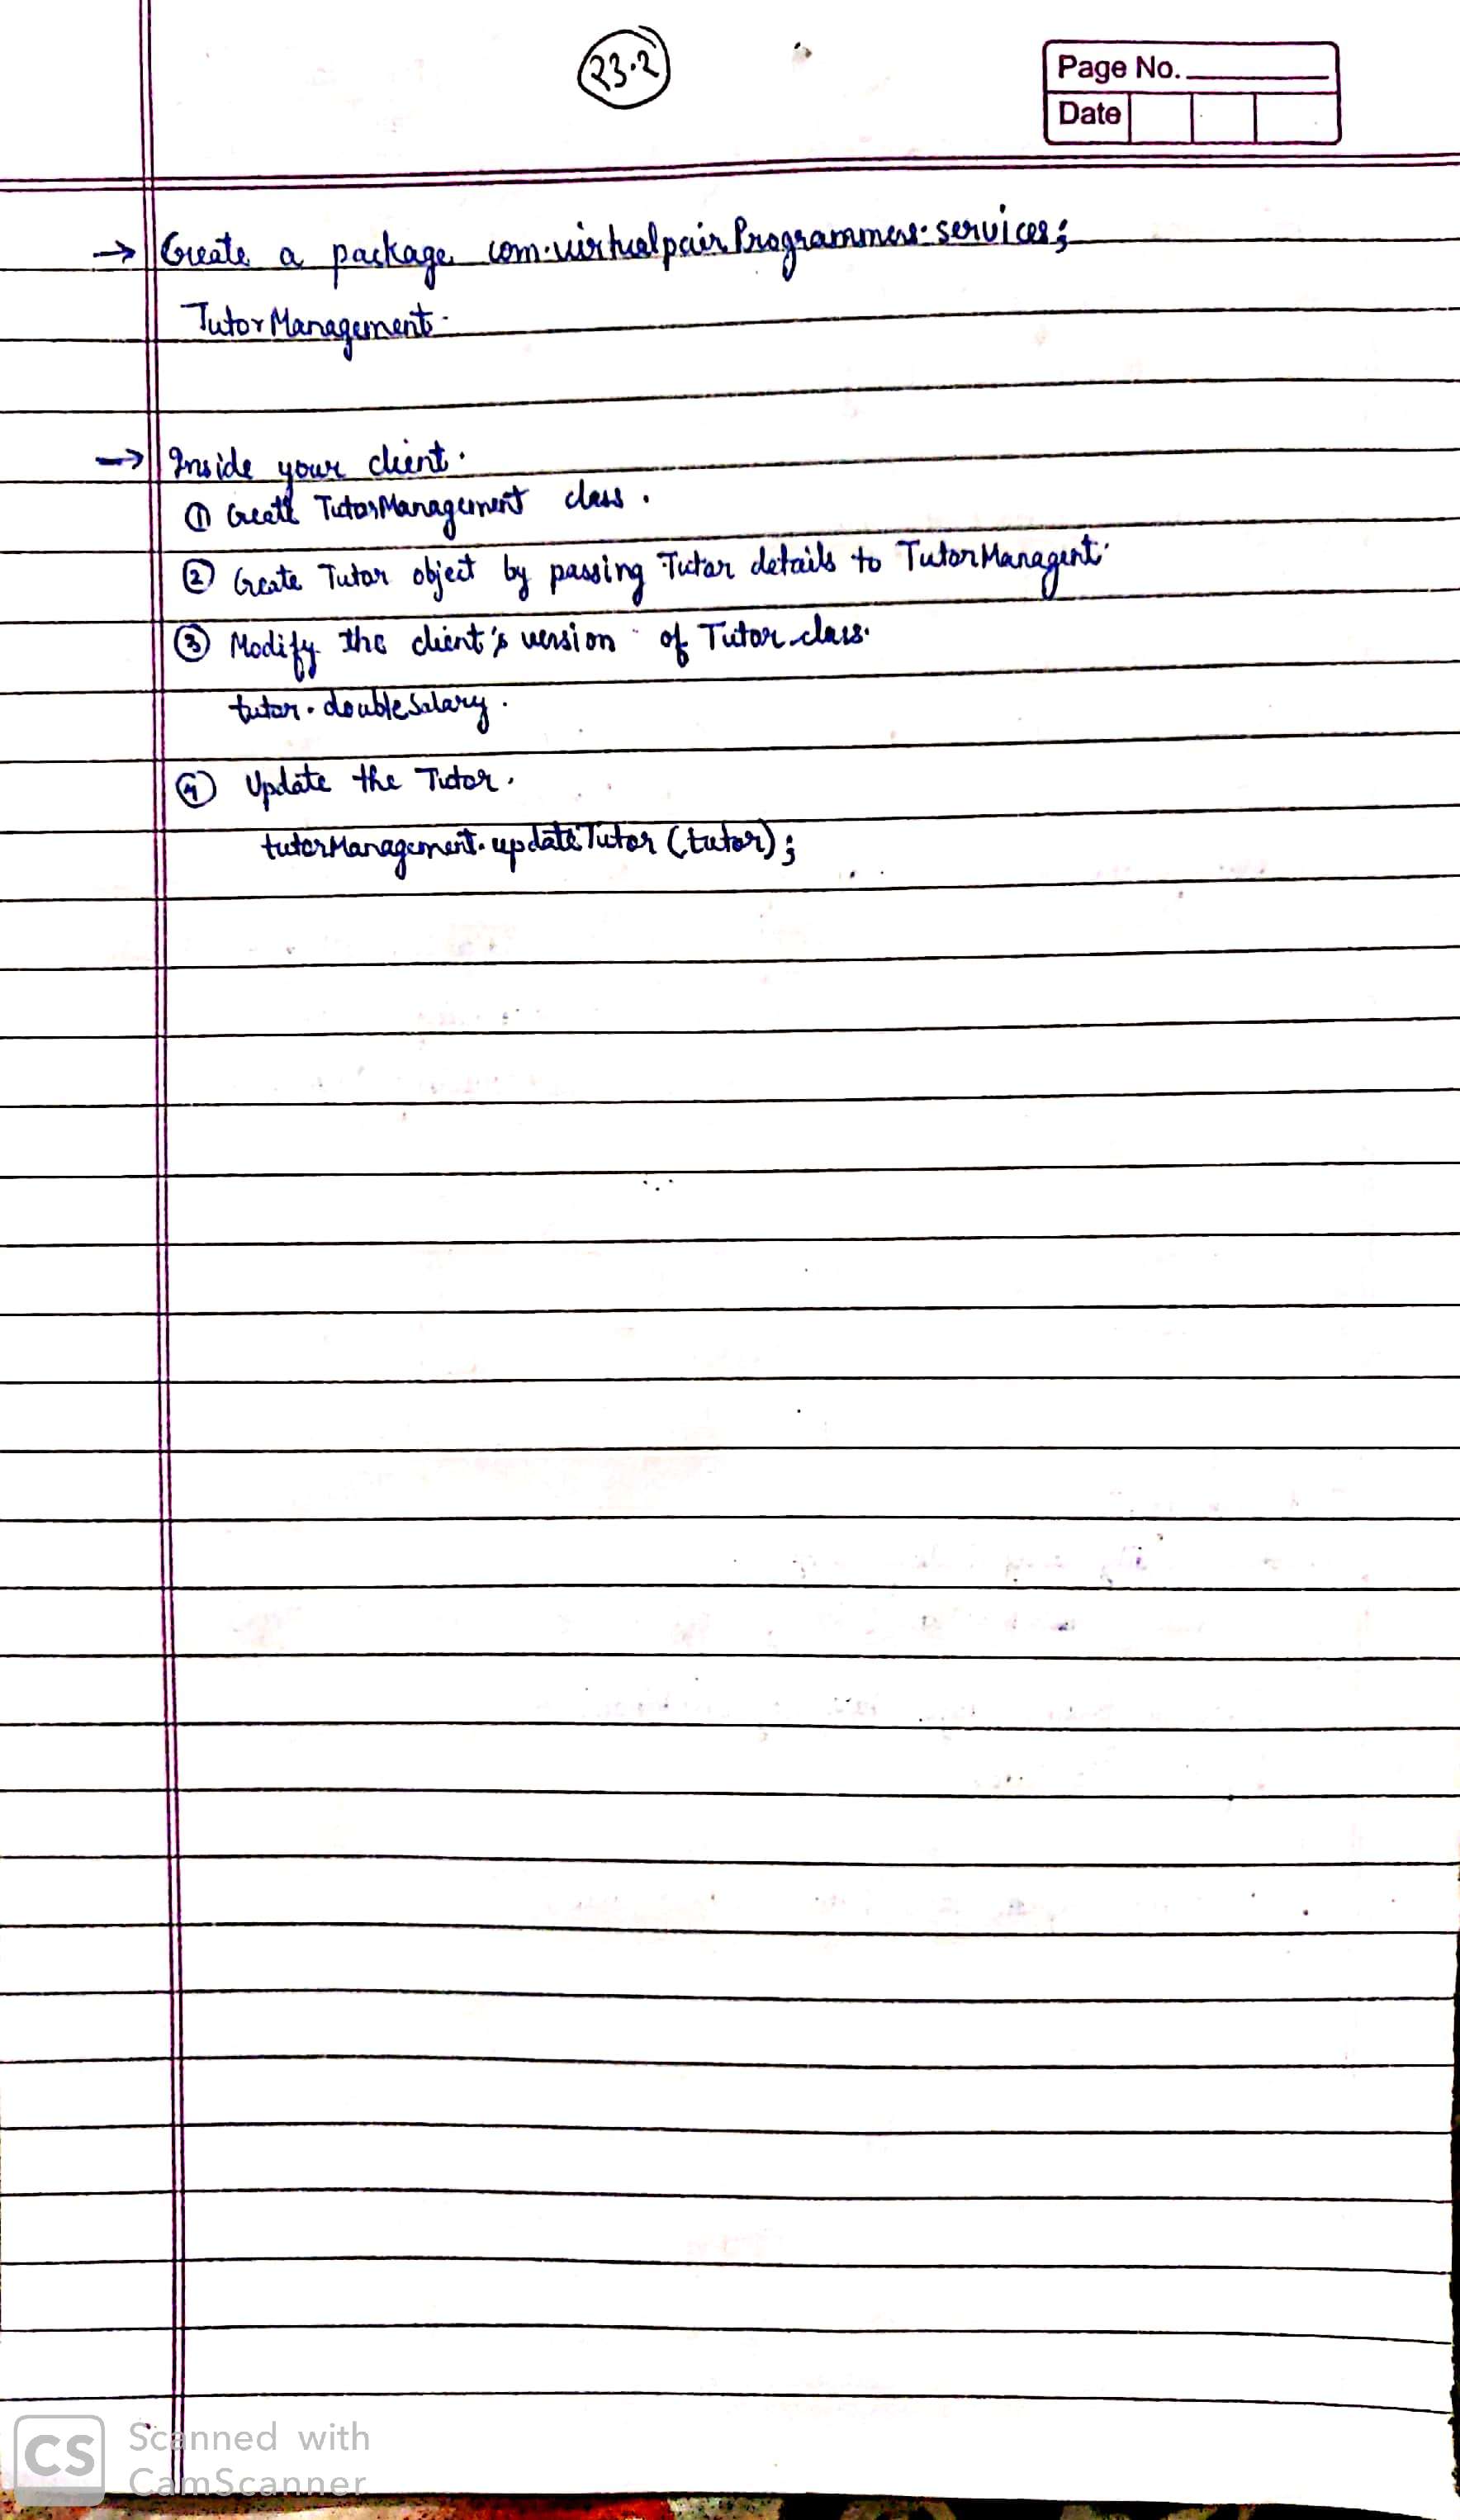 23.2
Page No.
Date
→ Create a package com.virtualpairProgrammers.services;
TutorManagement.
→ Inside your client.
① Create TutorManagement class.
② Create Tutor object by passing Tutor details to TutorManagent.
③ Modify the client's version of Tutor class.
tutor.doubleSalary.
④ Update the Tutor.
tutorManagement.updateTutor (tutor);
CS Scanned with
CamScanner